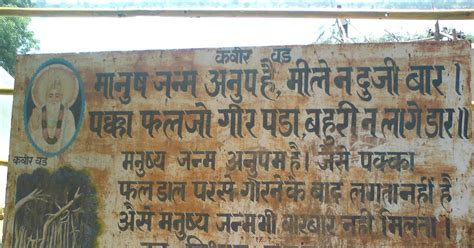 कबीर वड
मानुष जन्म अनुप है, मीले न दुजी बार ।
पक्का फल जो गीर पडा, बहुरी न लागे डार ॥
कबीर वड
मनुष्य जन्म अनुपम है। जैसे पक्का
फल डाल परसे गीरनेके बाद लगता नहीं है
औसे मनुष्य जन्म भी बारबार नहीं मिलता ।